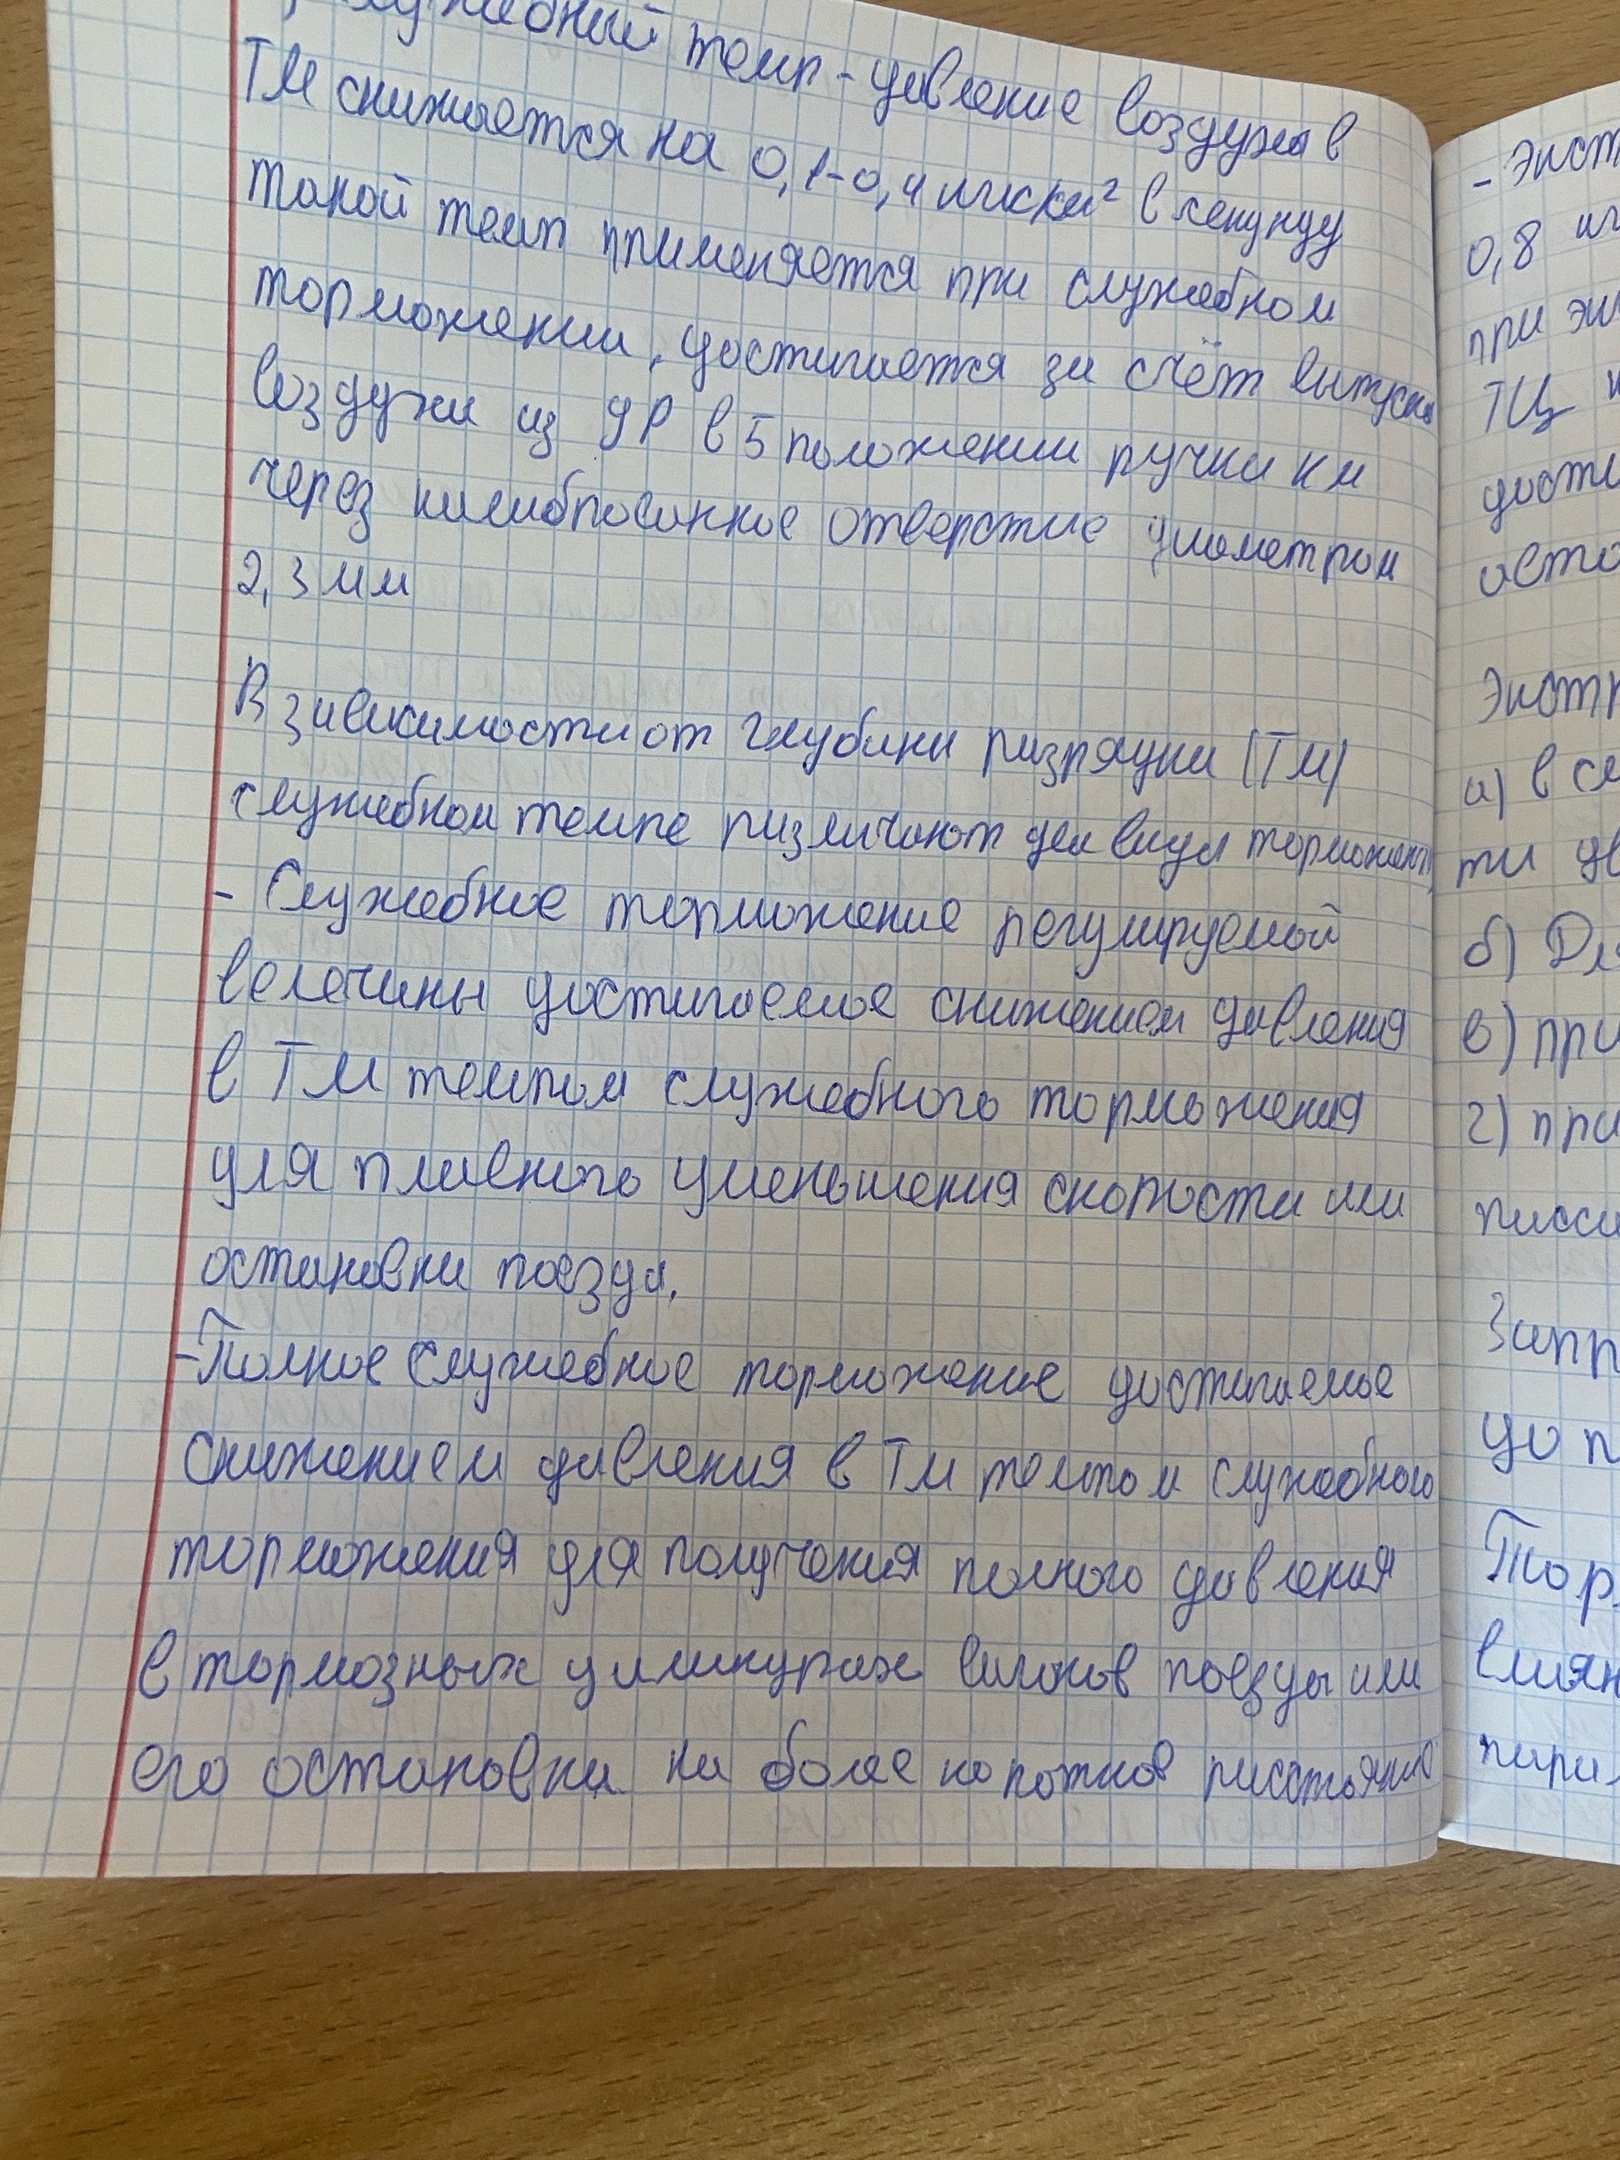 Служебный темп - давление воздуха в
ТМ снижается на 0,1-0,4 кгс/см² в секунду
такой темп применяется при служебном
торможении, достигается за счёт выпуска
воздуха из УР в 5 положении ручки км
через калиброванное отверстие диаметром
2,3 мм
В зависимости от глубины разрядки (ТМ)
служебном темпе различают два вида торможения
- Служебное торможение регулируемой
велечины достигаемое снижением давления
в ТМ темпом служебного торможения
для плавного уменьшения скорости или
остановки поезда.
- Полное служебное торможение достигаемое
снижением давления в ТМ темпом служебного
торможения для получения полного давления
в тормозных цилиндрах вагонов поезда или
его остановки на более коротком расстоянии
- Экст
0,8
при эк
ТЦ
дости
оста
Экстр
а) в сл
ти дв
б) Дл
в) при
г) при
пасса
Запр
до п
Тор
влиян